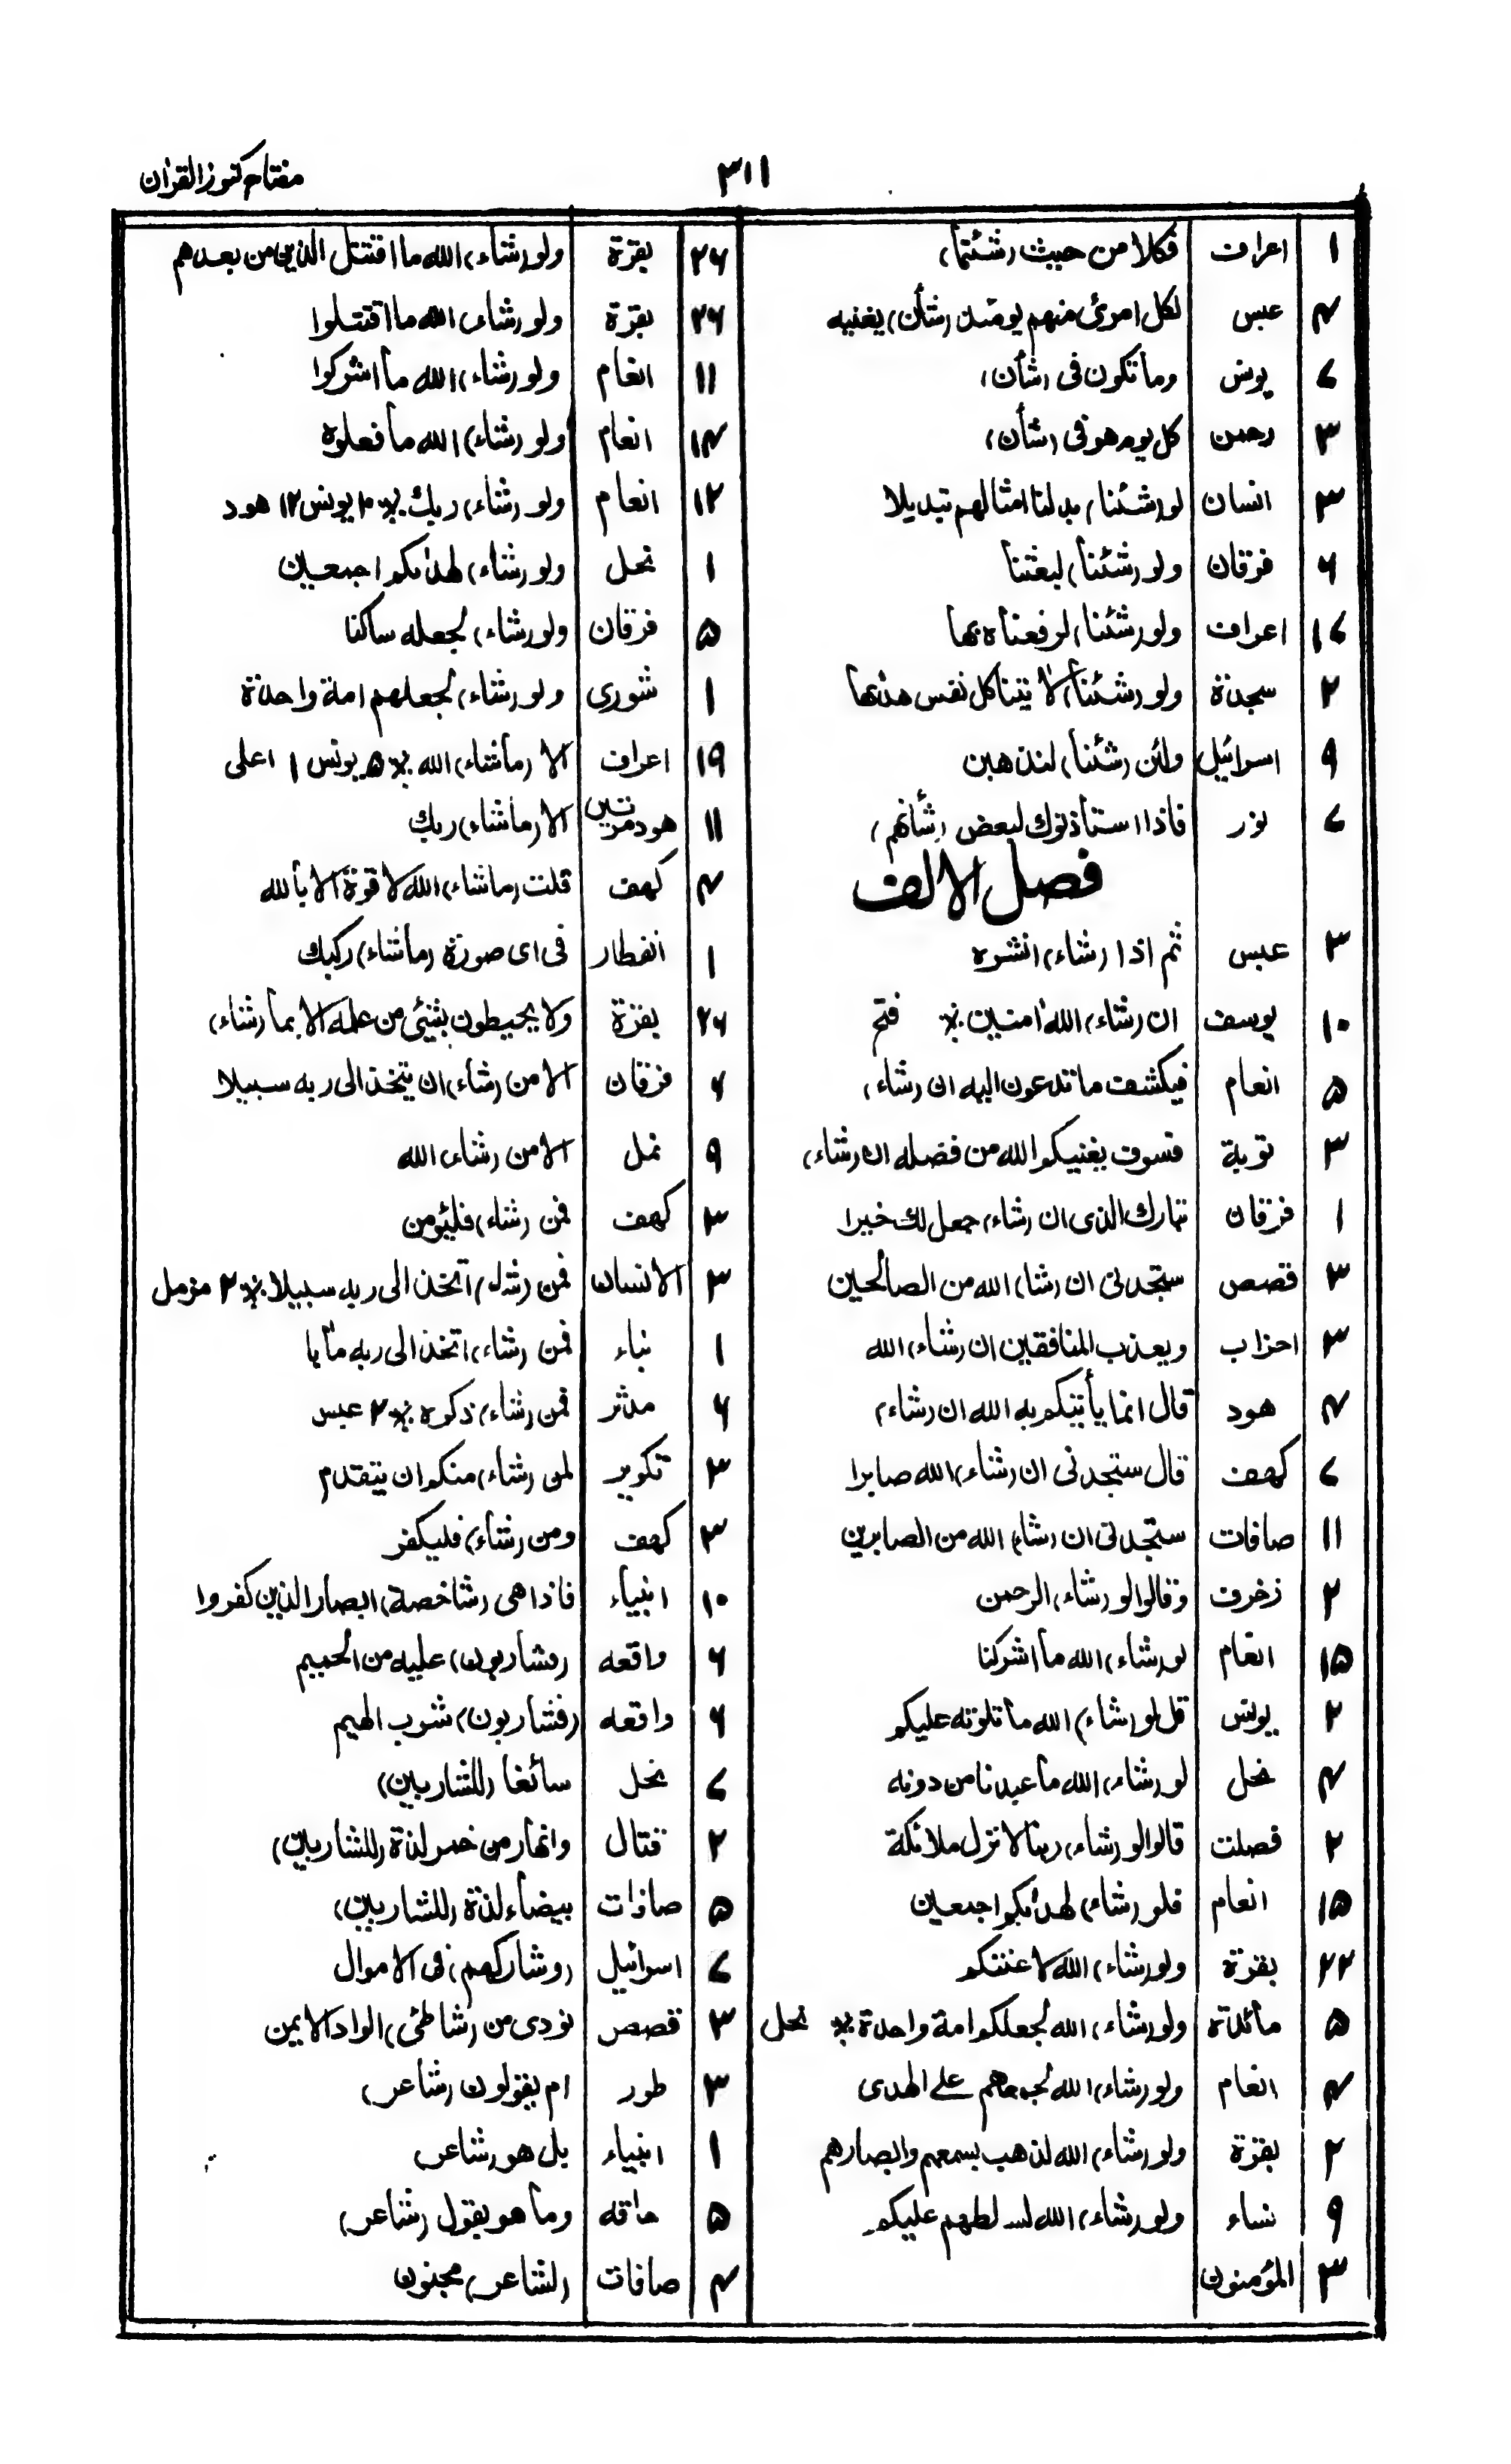 مفتاح كنوز القران
٣١١
١ اعراف فكلا من حيث (شئتما)
٤ عبس لكل امرئ منهم يومئذ (شأن) يغنيه
٧ يونس وما تكون فى (شأن)
٣ رحمن كل يوم هو فى (شأن)
٣ انسان لو (شئنا) بدلنا امثالهم تبديلا
٦ فرقان ولو (شئنا) لبعثنا
١٧ اعراف ولو (شئنا) لرفعناه بها
٢ سجدة ولو (شئنا) لا تيناكل نفس هدٰىها
٩ اسرائيل ولئن (شئنا) لنذهبن
٧ نور فاذا استأذنوك لبعض (شأنهم)
فصل الالف
٣ عبس ثم اذا (شاء) انشره
١٠ يوسف ان (شاء) الله اٰمنين ٪ فتح
٥ انعام فيكشف ما تدعون اليه ان (شاء)
٣ توبة فسوف يغنيكم الله من فضله ان (شاء)
١ فرقان تبارك الذى ان (شاء) جعل لك خيرا
٣ قصص ستجدنى ان (شاء) الله من الصالحين
٣ احزاب ويعذب المنافقين ان (شاء) الله
٤ هود قال انما يأتيكم به الله ان (شاء)
٧ كهف قال ستجدنى ان (شاء) الله صابرا
١١ صافات ستجدنى ان (شاء) الله من الصابرين
٢ زخرف وقالوا لو (شاء) الرحمن
١٥ انعام لو (شاء) الله ما اشركنا
٢ يونس قل لو (شاء) الله ما تلوته عليكم
٤ نحل لو (شاء) الله ما عبدنا من دونه
٢ فصلت قالوا لو (شاء) ربنا لا نزل ملائكة
١٥ انعام فلو (شاء) لهدٰىكم اجمعين
٢٢ بقرة ولو (شاء) الله لاعنتكم
٥ مائدة ولو (شاء) الله لجعلكم امة واحدة ٪ نحل
٤ انعام ولو (شاء) الله لجمعهم على الهدى
٢ بقرة ولو (شاء) الله لذهب بسمعهم وابصارهم
٩ نساء ولو (شاء) الله لسلطهم عليكم
٣ المؤمنون
٢٦ بقرة ولو (شاء) الله ما اقتتل الذين من بعدهم
٢٦ بقرة ولو (شاء) الله ما اقتتلوا
١١ انعام ولو (شاء) الله ما اشركوا
١٤ انعام ولو (شاء) الله ما فعلوه
١٢ انعام ولو (شاء) ربك ٪ ١٠ يونس ١٢ هود
١ نحل ولو (شاء) لهدٰىكم اجمعين
٥ فرقان ولو (شاء) لجعله ساكنا
١ شورى ولو (شاء) لجعلهم امة واحدة
١٩ اعراف الا (ماشاء) الله ٪ ٥ يونس ١ اعلى
١١ هود مرتين الا (ماشاء) ربك
٤ كهف قلت (ماشاء) الله لا قوة الا بالله
١ انفطار فى اى صورة (ماشاء) ركبك
٢٦ بقرة ولا يحيطون بشئى من علمه الا بما (شاء)
٦ فرقان الا من (شاء) ان يتخذ الى ربه سبيلا
٩ نمل الا من (شاء) الله
٣ كهف فمن (شاء) فليؤمن
٣ الانسان فمن (شاء) اتخذ الى ربه سبيلا ٪ ٢ مزمل
١ نباء فمن (شاء) اتخذ الى ربه مآبا
٦ مدثر فمن (شاء) ذكره ٪ ٢ عبس
٣ تكوير لمن (شاء) منكم ان يتقدم
٣ كهف ومن (شاء) فليكفر
١٠ انبياء فاذا هى (شاخصة) ابصار الذين كفروا
٦ واقعه (فشاربون) عليه من الحميم
٦ واقعه (فشاربون) شرب الهيم
٧ نحل سائغا (للشاربين)
٢ قتال وانهار من خمر لذة (للشاربين)
٥ صافات بيضاء لذة (للشاربين)
٧ اسرائيل (وشاركهم) فى الاموال
٣ قصص نودى من (شاطئ) الواد الايمن
٣ طور ام يقولون (شاعر)
١ انبياء بل هو (شاعر)
٥ حاقه وما هو بقول (شاعر)
٤ صافات (لشاعر) مجنون